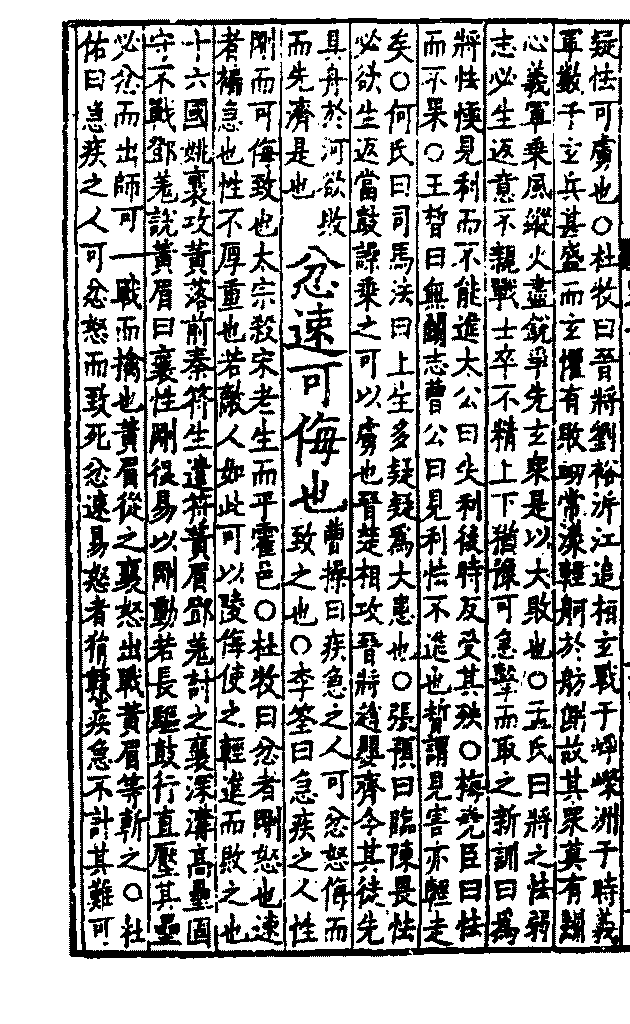 疑怯可虜也○杜牧曰晉將劉裕泝江追桓玄戰于崢嶸洲于時義
軍數千玄兵甚盛而玄懼有敗衂常漾輕舸於舫側故其眾莫有鬬
心義軍乗風縱火盡銳爭先玄衆是以大敗也○孟氏曰將之怯弱
志必生返意不親戰士卒不精上下猶豫可急擊而取之新訓曰爲
將怯懦見利而不能進太公曰失利後時反受其殃○梅堯臣曰怯
而不果○王晳曰無鬬志曹公曰見利怯不進也晳謂見害亦輕走
矣○何氏曰司馬法曰上生多疑疑爲大患也○張預曰臨陳畏怯
必欲生返當鼓譟乗之可以虜也晉楚相攻晉將趙嬰齊令其徒先
具舟於河欲敗
而先濟是也
忿速可侮也
曹操曰疾急之人可忿怒侮而
致之也○李筌曰急疾之人性
剛而可侮致也太宗殺宋老生而平霍邑○杜牧曰忿者剛怒也速
者褊急也性不厚重也若敵人如此可以陵侮使之輕進而敗之也
十六國姚襄攻黃落前秦苻生遣苻黃眉鄧羌討之襄深溝高壘固
守不戰鄧羌說黃眉曰襄性剛很易以剛動若長驅鼓行直壓其壘
必忿而出師可一戰而擒也黃眉從之襄怒出戰黃眉等斬之○杜
佑曰急疾之人可忿怒而致死忿速易怒者狷戇疾急不計其難可